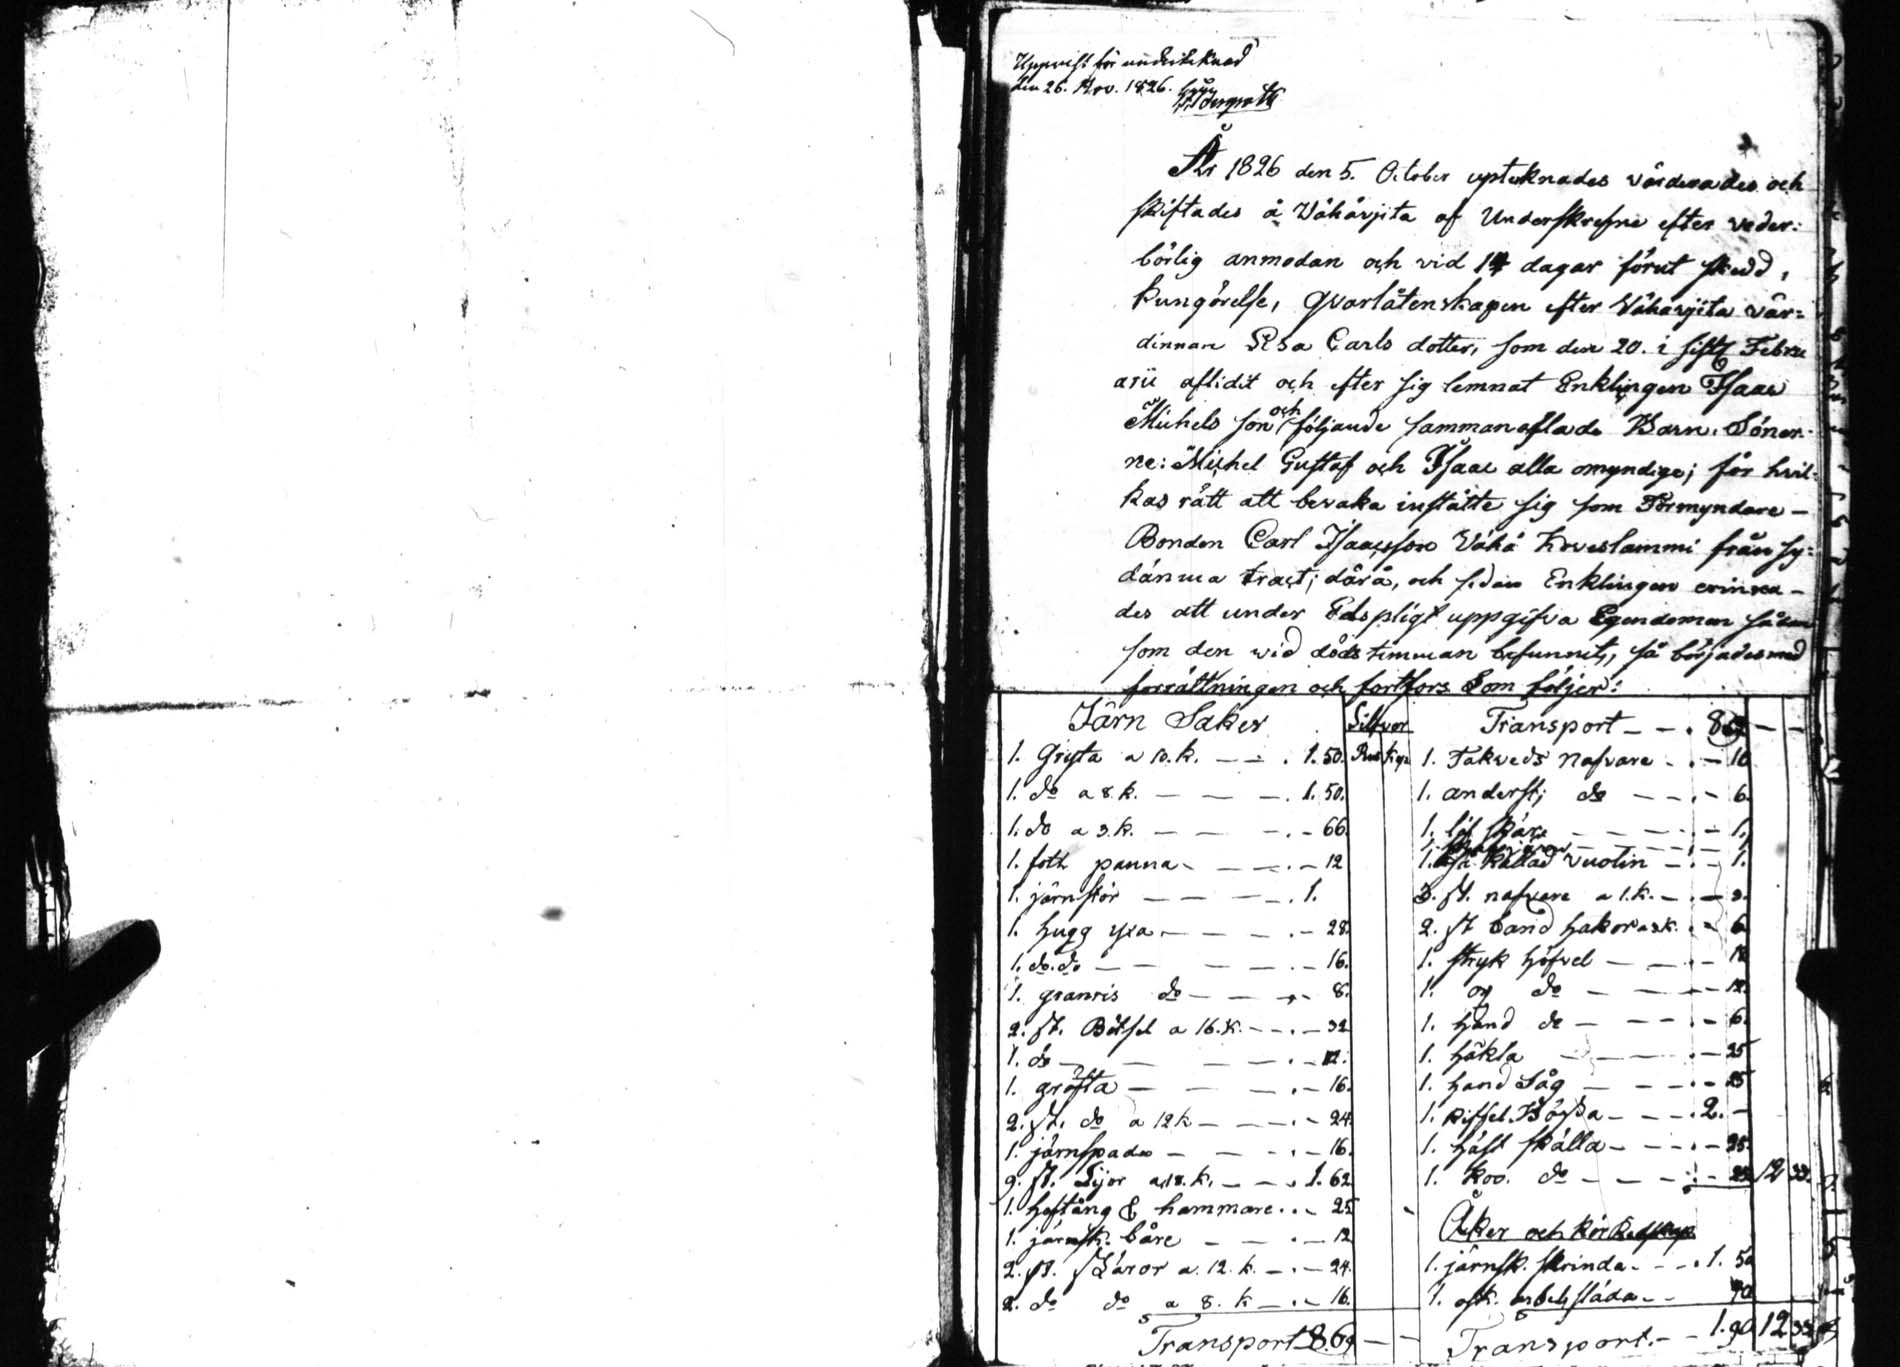 den 26. Nov. 1826.
År 1826 den 5. October upteknades värderades och
skiftades å Vähärjita af Underskrefne efter veder-
börlig anmodan och vid 14 dagar förut skedd,
kungörelse, qvarlåtenskapen efter Vähärjita vär=
dinnan Lisa Carls dotter, som den 20. i sistl. Febru
arii aflidit och efter sig lemnat Enklingen Isaac
Michels son och följande sammanaflade Barn. Söner-
ne: Michel Gustaf och Isaac alla omyndige; för hvil-
kas rätt att bevaka instälte sig som Förmyndare -
Bonden Carl Isaacsson Vähä från Sy=
dänma tract; därå, och sedan Enklingen erinra-
des att under Edspligt uppgifva Egendomen sådan
som den wid dödstimman befunnits, så börjades med
förrättningen och fortfors Som följer:
Järn Saker Silfver
1. Gryta a 10. k. — — . 1.50. Rub Kop
1. do a 8. k. — — — . 1.50.
1. do a 3. k. — — — . - 66.
1. foth panna - — — . - 12
1. järnstör — — — — . 1.
1. hugg yxa - — — — . - 28.
1. do. do — — — — . - 16.
1. granris do — — — . - 8.
2. st. Bötsel a 16. k. - - . - 32
1. do — — — — . - 12.
1. gräfta — — — — . - 16.
2. st. do a 12 k — — — . - 24.
1. järnspade — — — . - 16.
9. st. Lijor a 18. k. — — . 1.62
1. hoftång & hammare . . - 25
1. järnsk. båre — — — . - 12
2. st. Skäror a. 12. k. — . - 24.
2. do do a 8. k — . - 16.
Transport 8.69 — —
Transport — — . 8.69 — —
1. Takveds Nafvare - . - 10
1. anderst; do — — . - 6.
1. lit skära — — — — . - 1.
1. så kallad vuolin — . - 1.
3. st. nafvare a 1. k. — . - 3.
2. st band hakor a 3 k. . - 6.
1. stryk höfvel — — . - 18
1. og do — — — . - 12.
1. hand do — — — . - 6.
1. häkla — — — . - 25
1. hand Såg — — — . - 25
1. Riffel Bössa — — — . 2. -
1. häst skälla — — — . - 25.
1. koo. do — — — . - 25 12 33.
Åker och kör Redskap
1. järnsk. skrinda. - - . 1. 50
1. osk. arbetsläda - - 40
Transport. - - 1.90 12 33